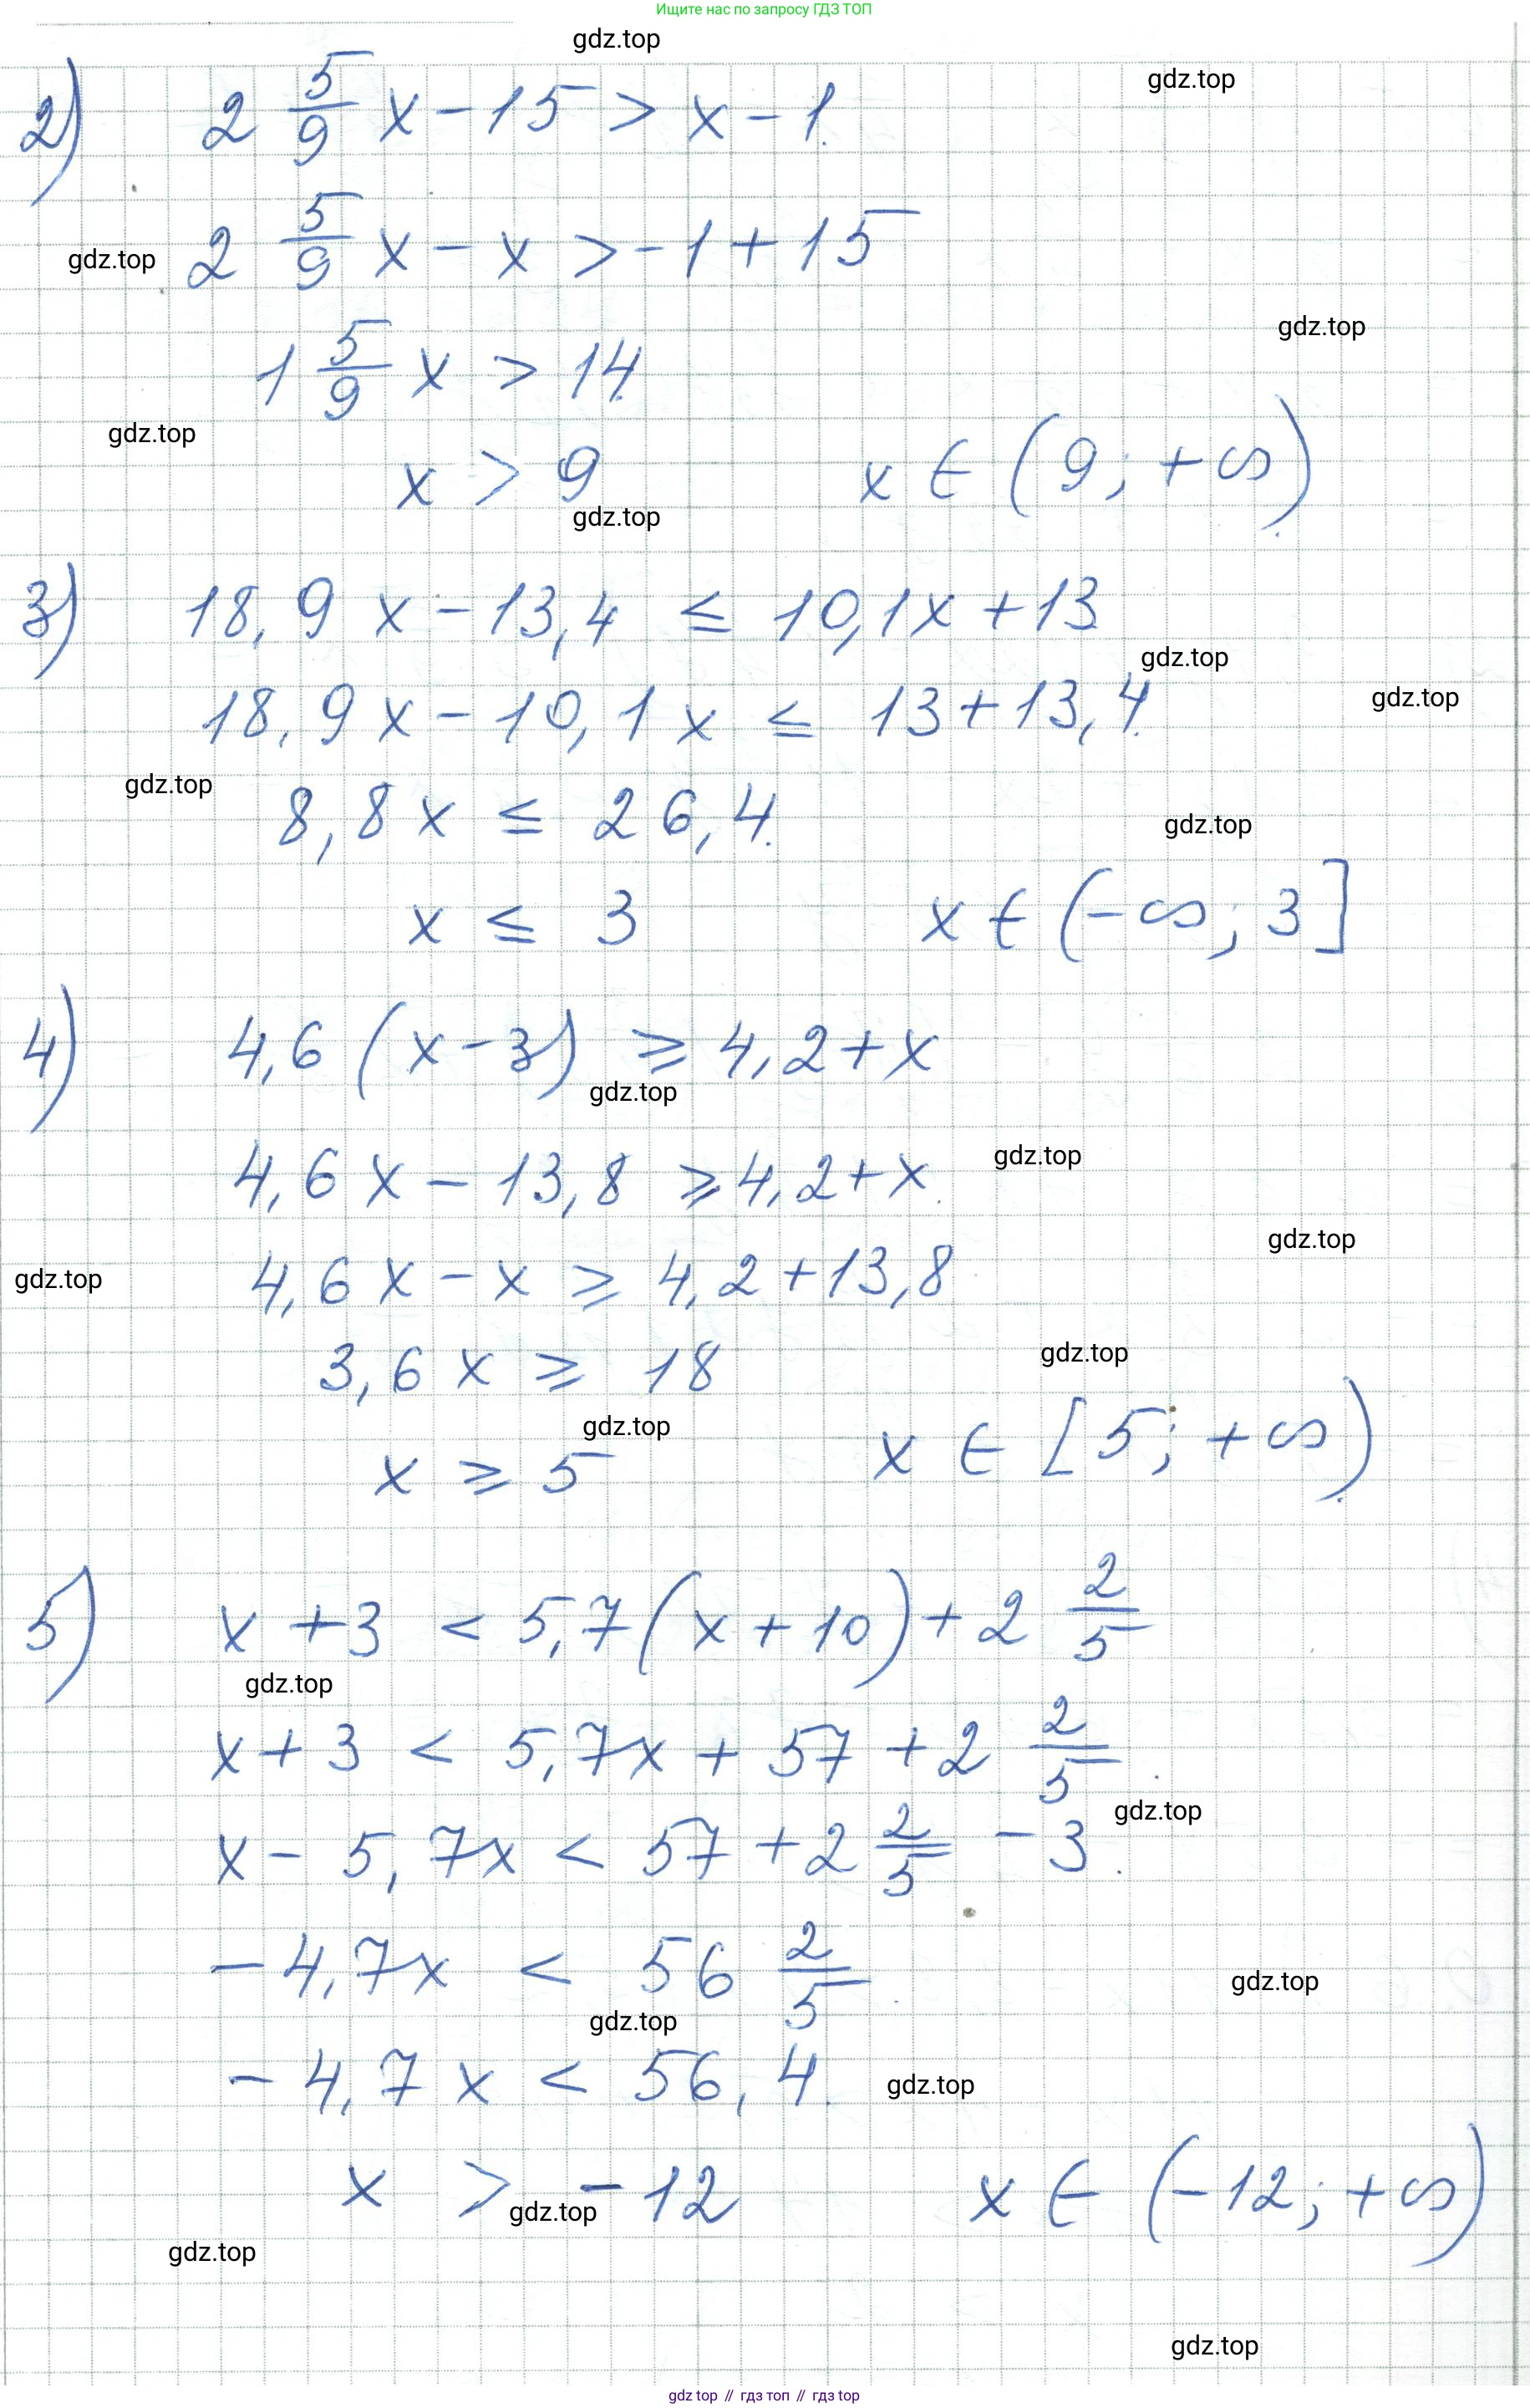 Ищите нас по запросу ГДЗ ТОП
gdz.top
gdz.top
2) 2 5/9 x - 15 > x - 1
gdz.top
2 5/9 x - x > -1 + 15
gdz.top
1 5/9 x > 14
gdz.top
x > 9 x ∈ (9; +∞)
gdz.top
3) 18,9x - 13,4 ≤ 10,1x + 13
gdz.top
18,9x - 10,1x ≤ 13 + 13,4
gdz.top
gdz.top
8,8x ≤ 26,4
gdz.top
x ≤ 3 x ∈ (-∞; 3]
4) 4,6(x - 3) ≥ 4,2 + x
gdz.top
4,6x - 13,8 ≥ 4,2 + x
gdz.top
gdz.top
4,6x - x ≥ 4,2 + 13,8
gdz.top
3,6x ≥ 18
gdz.top
gdz.top
x ≥ 5 x ∈ [5; +∞)
5) x + 3 < 5,7(x + 10) + 2 2/5
gdz.top
x + 3 < 5,7x + 57 + 2 2/5
gdz.top
x - 5,7x < 57 + 2 2/5 - 3
-4,7x < 56 2/5
gdz.top
gdz.top
-4,7x < 56,4
gdz.top
x > -12 x ∈ (-12; +∞)
gdz.top
gdz.top
gdz.top
gdz top // гдз топ // гдз top